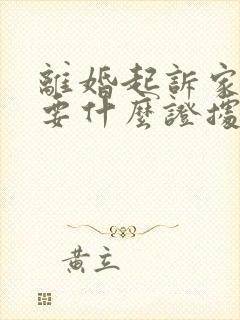 離婚起訴家
要什麼證據
黃立